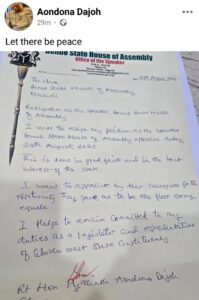 Aondona Dajoh
29m
Let there be peace
Benue State House of Assembly
Office of the Speaker
The Clerk
Benue State House of Assembly,
Makurdi
Resignation as the Speaker, Benue State House
of Assembly
I write to resign my position as the Speaker
Benue State House of Assembly effective today,
24th August, 2025.
This is done in good faith and in the best
interest of the State.
I want to appreciate my dear Colleagues for the
opportunity they gave me to be the first among
equals
I pledge to remain committed to my
duties as a Legislator and representative
of Gboko West State Constituency.
Rt. Hon Aondona Dajoh